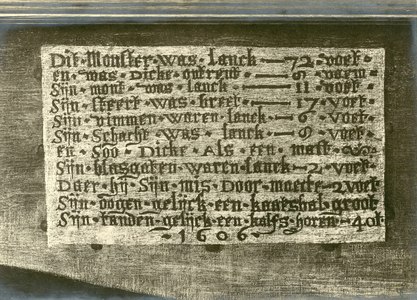 Dit·Monster·was·lanck·—72·voet·
en·was·Dicke·ontrent·—9·voem·
Sijn·mont·was·lanck·—11·voet·
Sijn·steert·was·breet·—17·voet·
Sijn·vimmen·waren·lanck·—6·voet·
Sijn·Schacht·was·lanck·—9·voet·
en·Soo·Dicke·Als·een·mast·
Sijn·blasgaten·waren·lanck·—2·voet·
Daer·hij·Sijn·mis·Door·maeckte·2·voet·
Sijn·oogen·gelijck·een·kaetsbal·groot
Sijn·tanden·gelijck·een·kalfs·horen·—40t·
·—1606—·